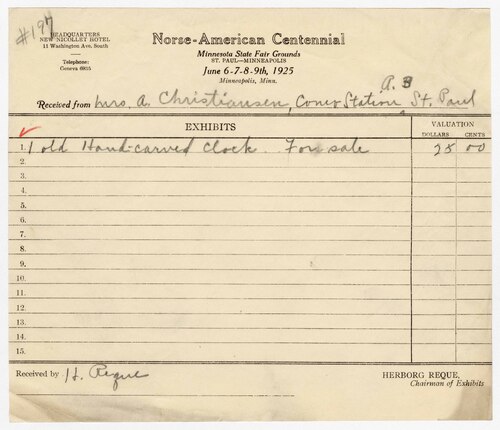 #197
HEADQUARTERS
NEW NICOLLET HOTEL
11 Washington Ave. South
Telephone:
Geneva 6935
Norse-American Centennial
Minnesota State Fair Grounds
ST. PAUL—MINNEAPOLIS
June 6-7-8-9th, 1925
Minneapolis, Minn.
Received from Mrs. A. Christiansen, Station St. Paul
EXHIBITS
VALUATION
DOLLARS CENTS
1. 1 old Hand-carved Clock. For sale 25 00
2.
3.
4.
5.
6.
7.
8.
9.
10.
11.
12.
13.
14.
15.
Received by H. Reque
HERBORG REQUE,
Chairman of Exhibits